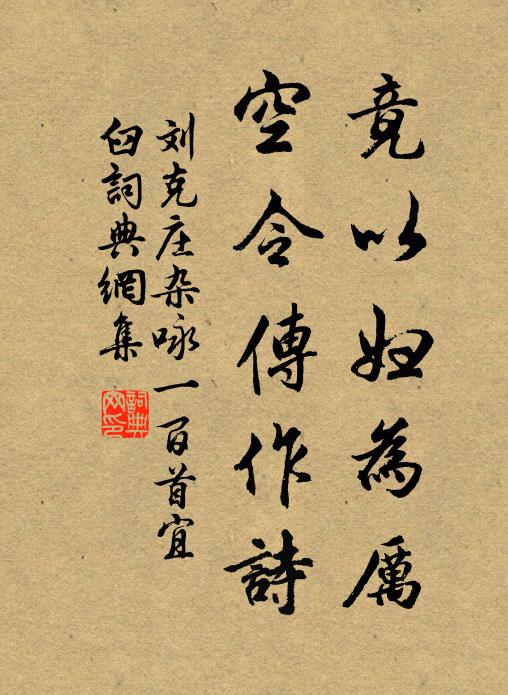 竟以妲為厲
空令傳作詩
刘克庄杂咏一百首宜
臼詞典網集
詞典网印